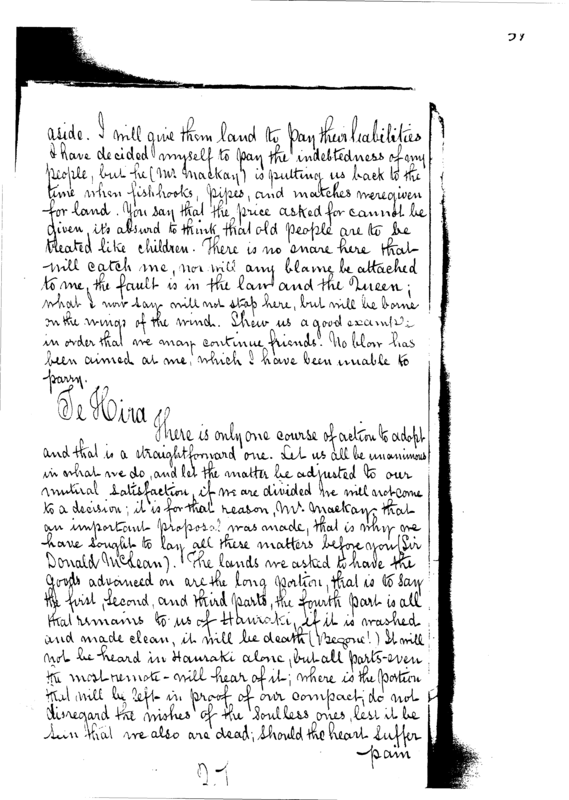 aside. I will give them land to pay their liabilities
I have decided myself to pay the indebtedness of my
people, but he (Mr. Mackay) is putting us back to the
time when fishhooks, pipes, and matches were given
for land. You say that the price asked for cannot be
given, it's absurd to think that old people are to be
treated like children. There is no snare here that
will catch me, nor will any blame be attached
to me, the fault is in the law and the Queen;
what I now say will not stop here, but will be borne
on the wings of the wind. Shew us a good example
in order that we may continue friends. No blow has
been aimed at me, which I have been unable to
parry.
Te Hira
There is only one course of action to adopt
and that is a straightforward one. Let us all be unanimous
in what we do, and let the matter be adjusted to our
mutual satisfaction, if we are divided we will not come
to a decision; it is for that reason, Mr. Mackay, that
an important proposal was made, that is why we
have sought to lay all these matters before you (Sir
Donald McLean). The lands we asked to have the
goods advanced on are the long portion, that is to say
the first, second, and third parts, the fourth part is all
that remains to us of Hauraki, if it is washed
and made clean, it will be death (Begone!) It will
not be heard in Hauraki alone, but all parts - even
the most remote - will hear of it; where is the portion
that will be left in proof of our compact; do not
disregard the wishes of the soulless ones, lest it be
seen that we also are dead; should the heart suffer
pain
27